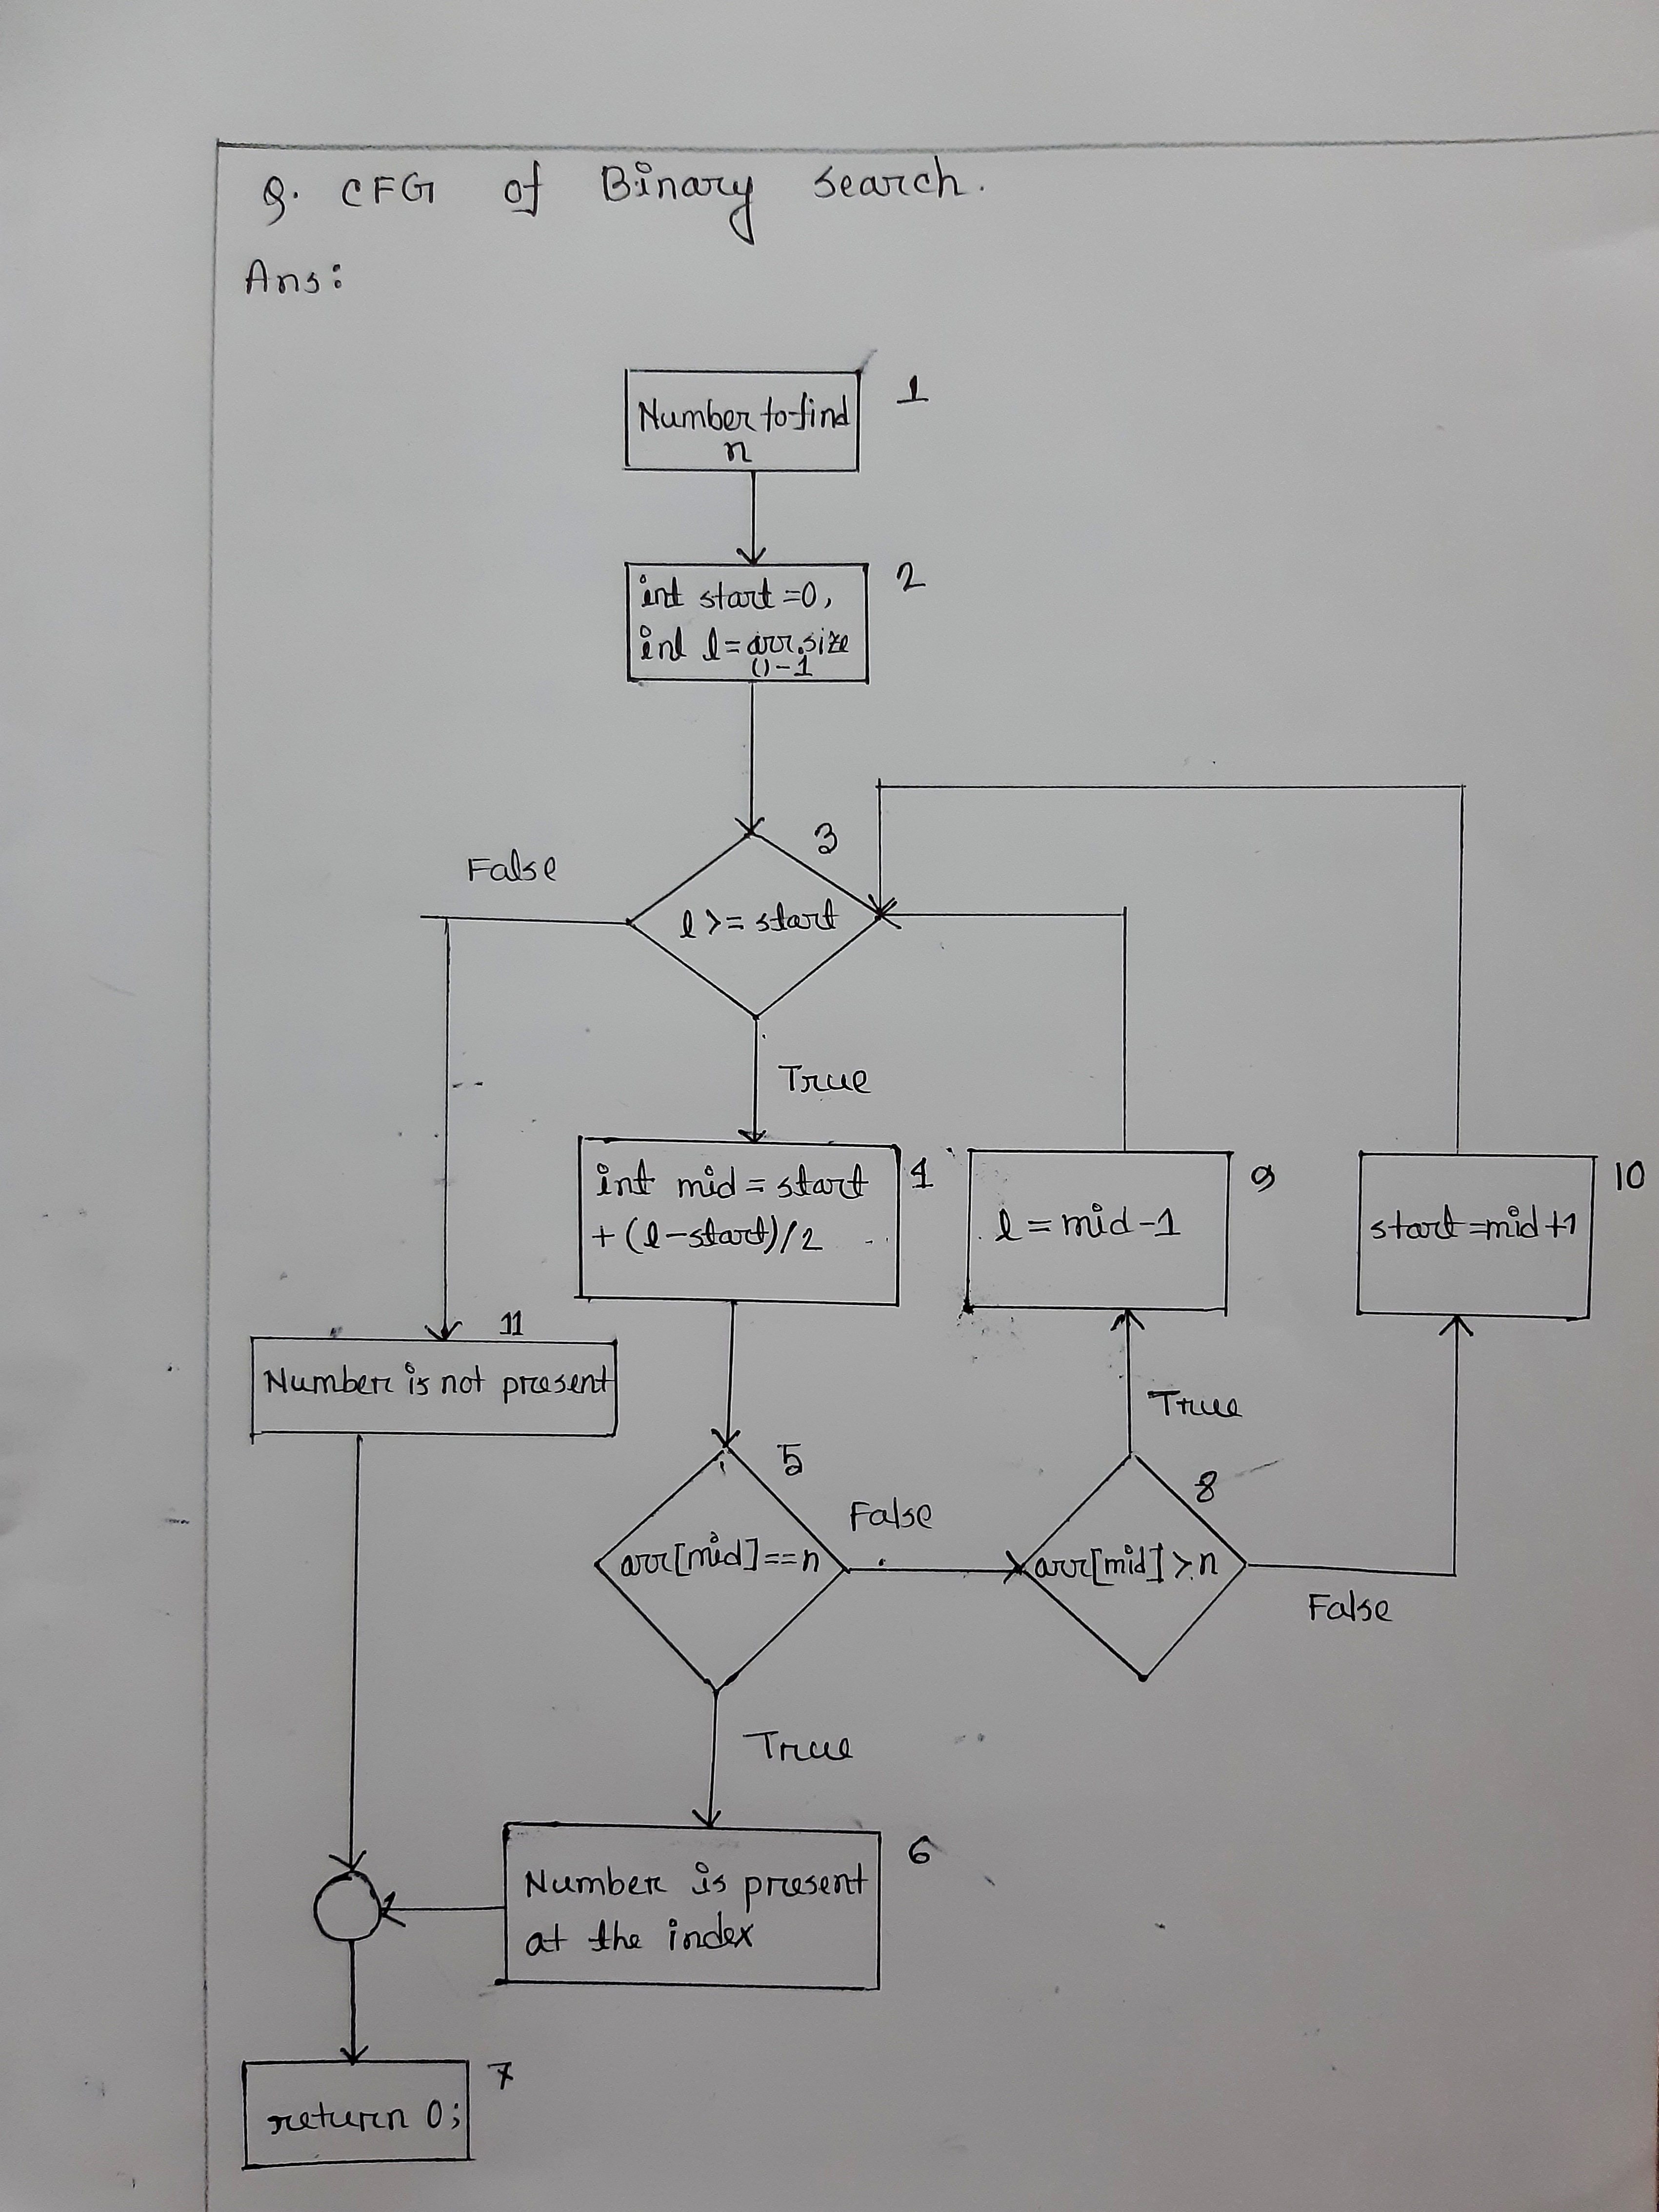 Q. CFG of Binary Search.
Ans:
1
Number to find
n
2
int start =0,
int l = arr.size
()-1
3
False
l >= start
True
4
int mid = start
+ (l-start)/2
9
l = mid -1
10
start =mid +1
11
Number is not present
True
5
8
False
arr[mid]==n
arr[mid] > n
False
True
6
Number is present
at the index
7
return 0;